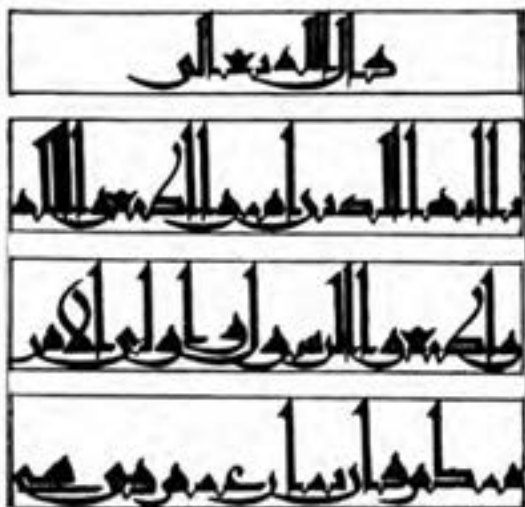 قال الله تعالى
يا أيها الذين آمنوا أطيعوا الله
وأطيعوا الرسول وأولي الأمر
منكم فإن تنازعتم في شيء